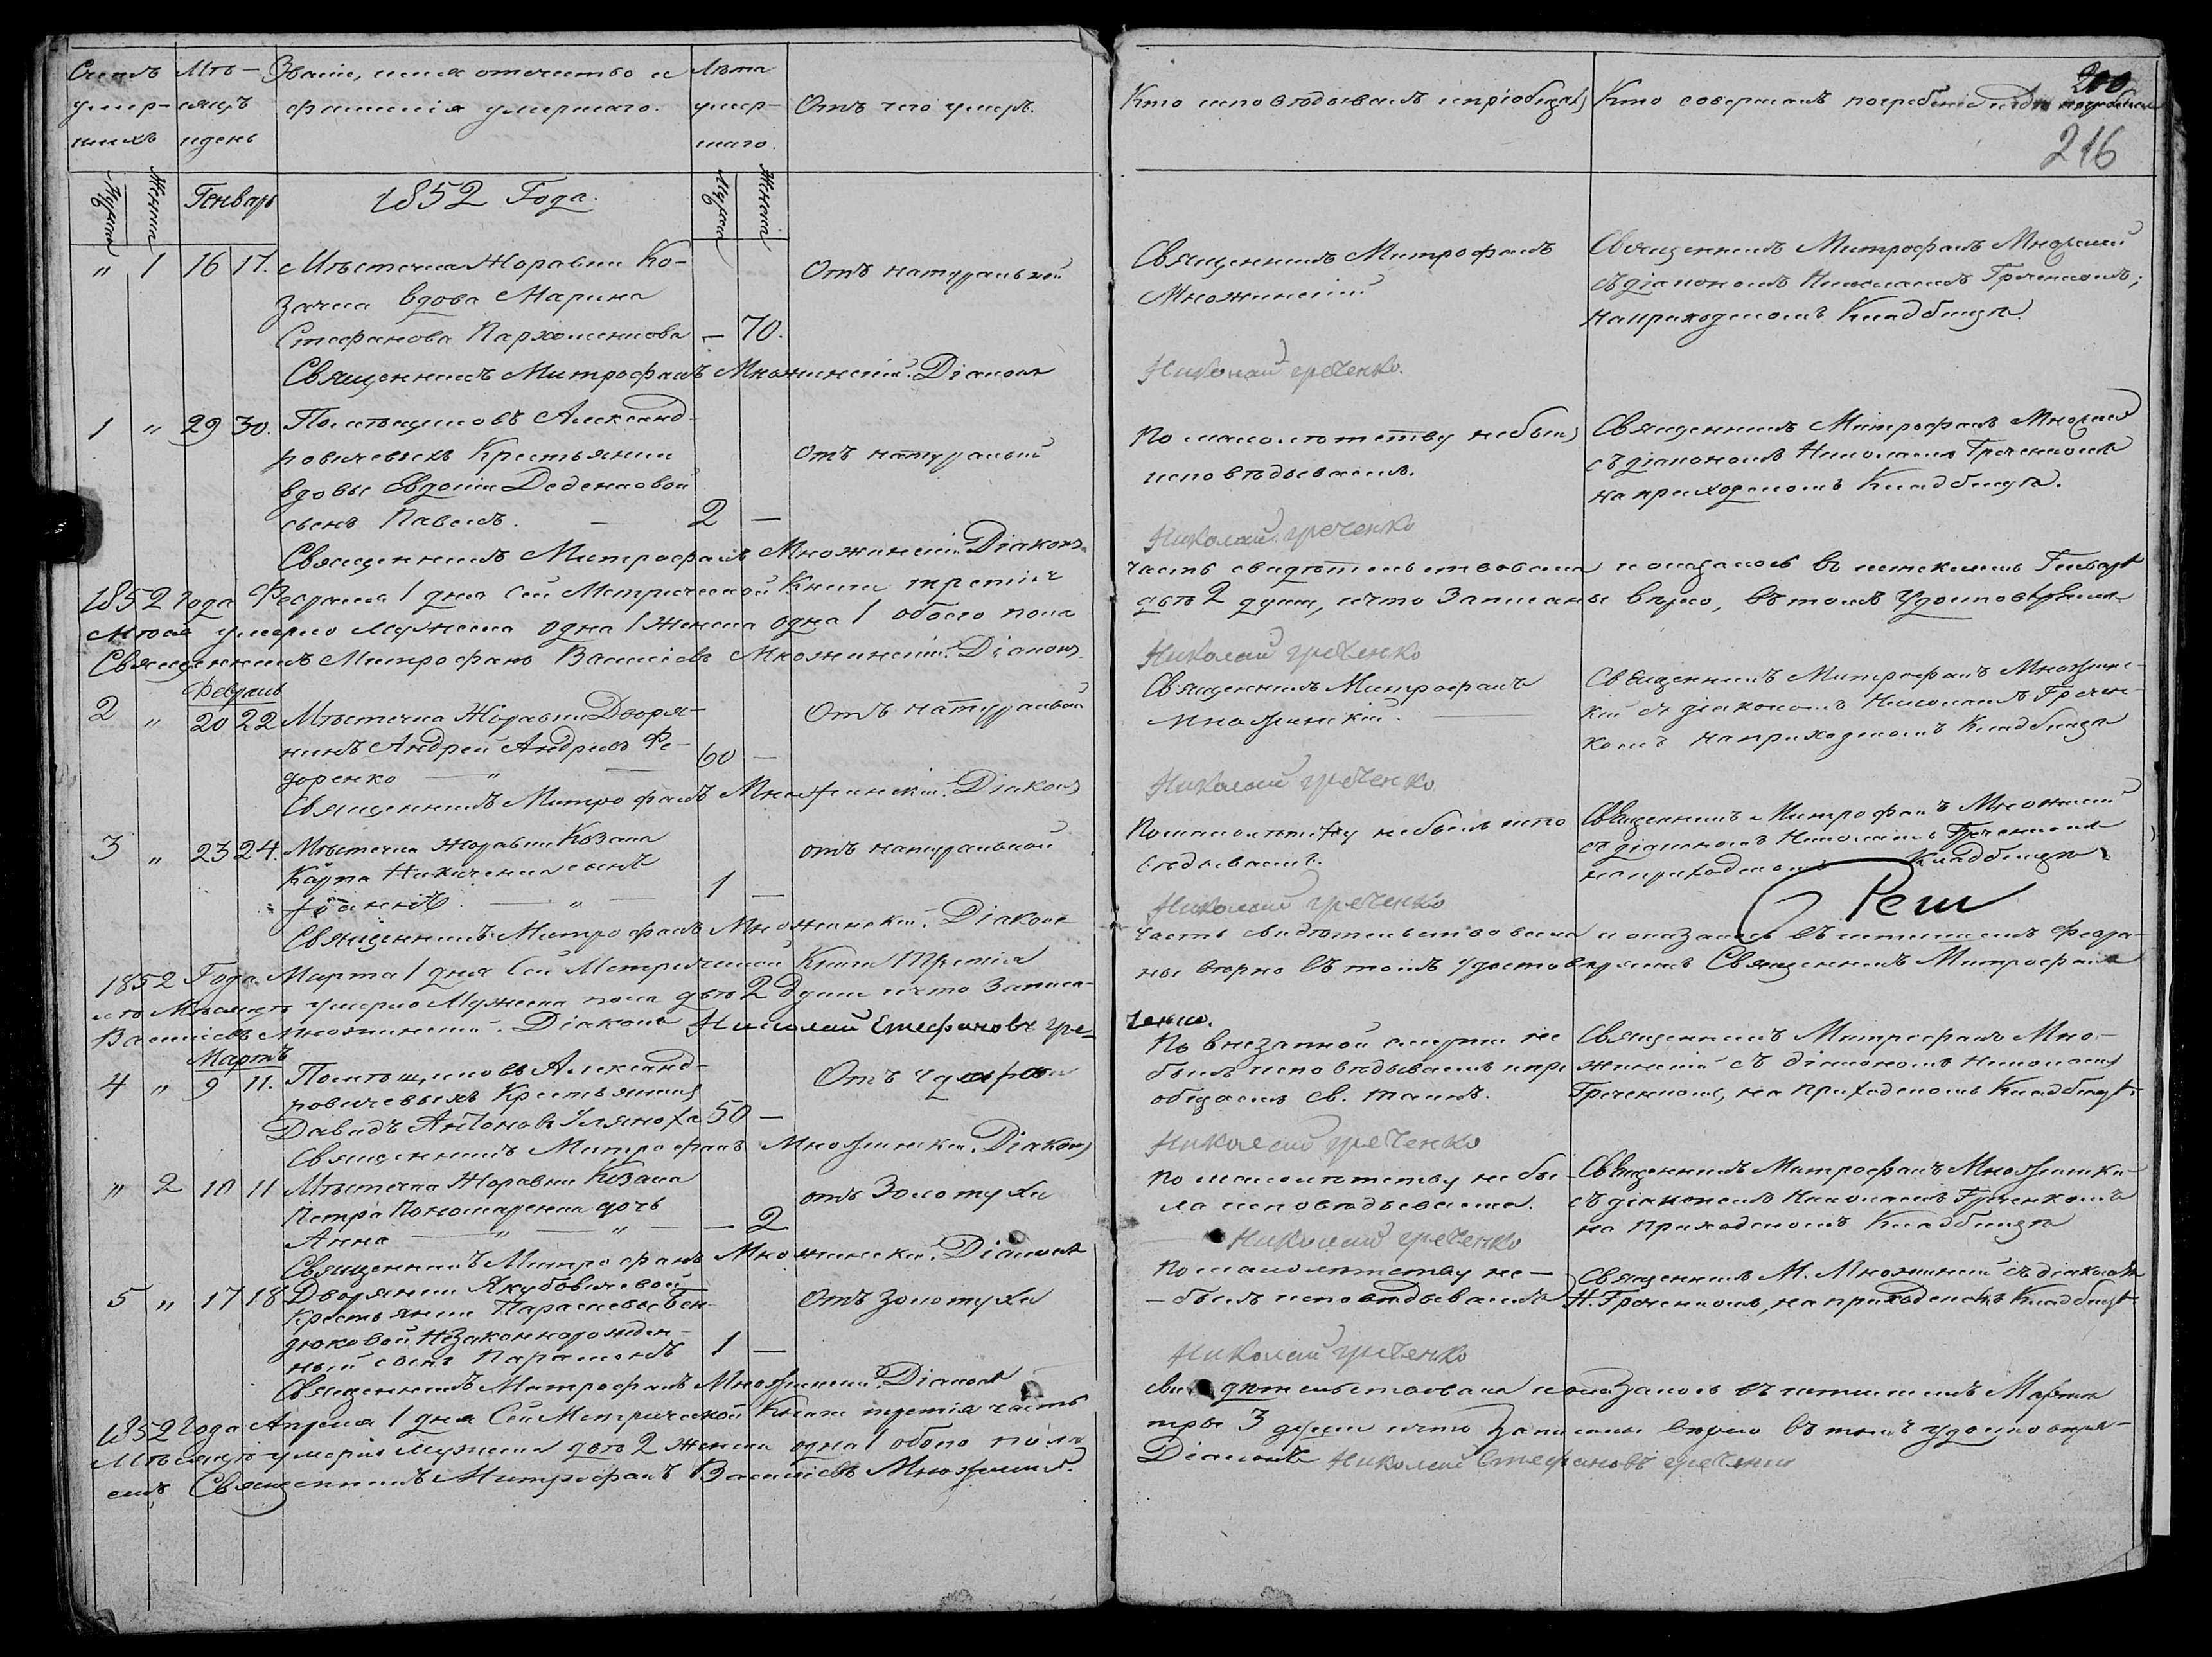 Счетъ умершихъ
Мѣсяцъ и день
Званіе, имя отчество и фамилія умершаго.
Лѣта умершаго.
Отъ чего умеръ.
Кто исповѣдывалъ и пріобщалъ
Кто совершалъ погребеніе и гдѣ погребены
200
216
Мужска
Женска
Генварь
1852 Года.
Мужска
Женска
" 1 16 17. Мѣстечка Жоравки Ко-
зачка вдова Марина
Стефанова Пархоменкова — 70.
Отъ натуральной
Священникъ Митрофанъ
Множинскій
Священникъ Митрофанъ
съ діакономъ Николаемъ Греченкомъ,
на приходскомъ Кладбищѣ.
Священникъ Митрофанъ Множинскій. Діаконъ
Николай Греченко.
1 " 29 30. Помѣщиковъ Александ-
ровичевыхъ Крестьянки
вдовы Евдокіи Деденковой
сынъ Павелъ. — 2 —
отъ натуральной
По малолѣтству небылъ
исповѣдываемъ.
Священникъ Митрофанъ
съ діакономъ Николаемъ Греченкомъ
на приходскомъ Кладбищѣ.
Священникъ Митрофанъ Множинскій. Діаконъ
Николай Греченко
1852 года Февраля 1 дня Сей Метрической Книги третія
часть свидѣтельствована и оказалось въ истекшемъ Генварѣ
Мѣсяцѣ умерло мужеска одна 1 женска одна 1 обоего пола
двѣ 2 души, и что Записаны вѣрно, въ томъ Удостовѣряемъ
Священникъ Митрофанъ Василіевъ Множинскій. Діаконъ
Николай Греченко
Февраль
2 " 20 22 Мѣстечка Жоравки Дворя-
нинъ Андрей Андреевъ Фе-
доренко — " — 60 —
Отъ натуральной
Священникъ Митрофанъ
Множинскій.
Священникъ Митрофанъ Множинс-
кій съ діакономъ Николаемъ Гречен-
комъ на приходскомъ Кладбищѣ
Священникъ Митрофанъ Множинскій. Діаконъ
Николай Греченко
3 " 23 24. Мѣстечка Жоравки Козака
Карпа сынъ
Іоаннъ. — " — 1 —
отъ натуральной
По малолѣтству небылъ испо-
вѣдываемъ.
Священникъ Митрофанъ Множинскій
съ діакономъ Николаемъ Греченкомъ
на приходскомъ Кладбищѣ
Священникъ Митрофанъ Множинскій. Діаконъ
Николай Греченко
1852 Года Марта 1 дня Сей Метрической Книги Третія
часть свидѣтельствована и оказалось въ истекшемъ Февра-
лѣ Мѣсяцѣ умерло Мужеска пола двѣ 2 души и что Записа-
ны вѣрно въ томъ удостовѣряемъ Священникъ Митрофанъ
Василіевъ Множинскій. Діаконъ Николай Стефановъ Гре-
ченко.
Мартъ
4 " 9 11. Помѣщиковъ Александ-
ровичевыхъ Крестьянинъ
Давидъ Антоновъ 50 —
Отъ
По внезапной смерти не
былъ исповѣдываемъ и прі-
общаемъ св. таинъ.
Священникъ Митрофанъ Мно-
жинскій съ діакономъ Николаемъ
Греченкомъ, на приходскомъ Кладбищѣ.
Священникъ Митрофанъ Множинскій. Діаконъ
Николай Греченко
" 2 10 11 Мѣстечка Жоравки Козака
Петра Пономаренка дочь
Анна — " — " — 2
отъ Золотухи
По малолѣтству небы-
ла исповѣдываема.
Священникъ Митрофанъ Множинскій
съ діакономъ Николаемъ Греченкомъ
на приходскомъ Кладбищѣ
Священникъ Митрофанъ Множинскій. Діаконъ
Николай Греченко
5 " 17 18 Дворянки Якубовичевой
Крестьянки Параскевы Бен-
дюковой Незаконнорожден-
ный сынъ Парамонъ 1 —
Отъ золотухи
По малолѣтству не-
былъ исповѣдываемъ
Священникъ М. Множинскій съ діакономъ
Н. Греченкомъ, на приходскомъ Кладбищѣ
Священникъ Митрофанъ Множинскій. Діаконъ
Николай Греченко
1852 Года Апреля 1 дня Сей Метрической Книги третія часть
свидѣтельствована и оказалось въ истекшемъ Мартѣ
Мѣсяцѣ умерло мужеска двѣ 2 женска одна 1 обоего пола
три 3 души и что Записаны вѣрно въ томъ удостовѣря-
емъ, Священникъ Митрофанъ Василіевъ Множинскій.
Діаконъ Николай Стефановъ Греченко